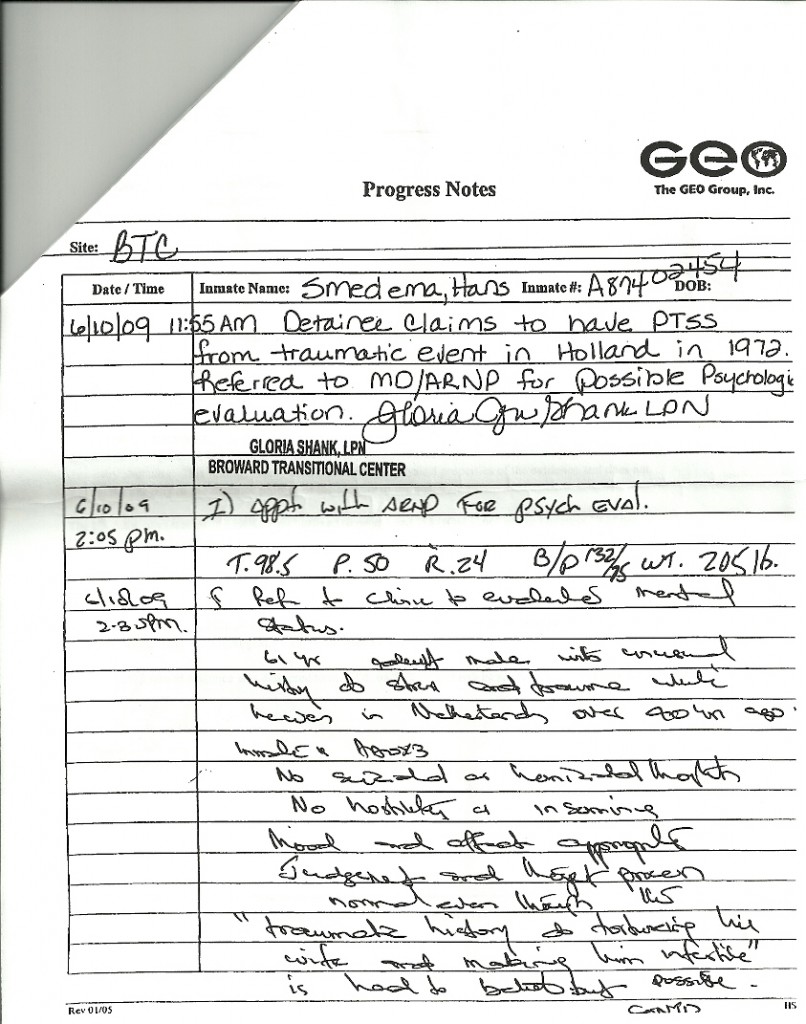 GEO
The GEO Group, Inc.
Progress Notes
Site: BTC
Date / Time Inmate Name: Smedema, Hans Inmate #: A87402454 DOB:
6/10/09 11:55AM Detainee Claims to have PTSS
from traumatic event in Holland in 1972.
Referred to MD/ARNP for possible Psychologic
evaluation. Gloria Shank LPN
GLORIA SHANK, LPN
BROWARD TRANSITIONAL CENTER
6/10/09 I) appt with ARNP For psych EVAl.
2:05 pm.
T. 98.5 P. 50 R. 24 B/P 132/75 WT. 205 lb.
to clinic to mental
2:35PM. Status.
61 yr male with unusual
history of stress and trauma while
in Netherlands over yr ago.
Inmate is A&Ox3
No suicidal or homicidal thoughts
No hostility or insomnia
Mood and affect appropriate
Judgement and thought process
normal even though his
"traumatic history of torturing his
wife and making him infertile"
is hard to but possible.
Rev 01/05 HS